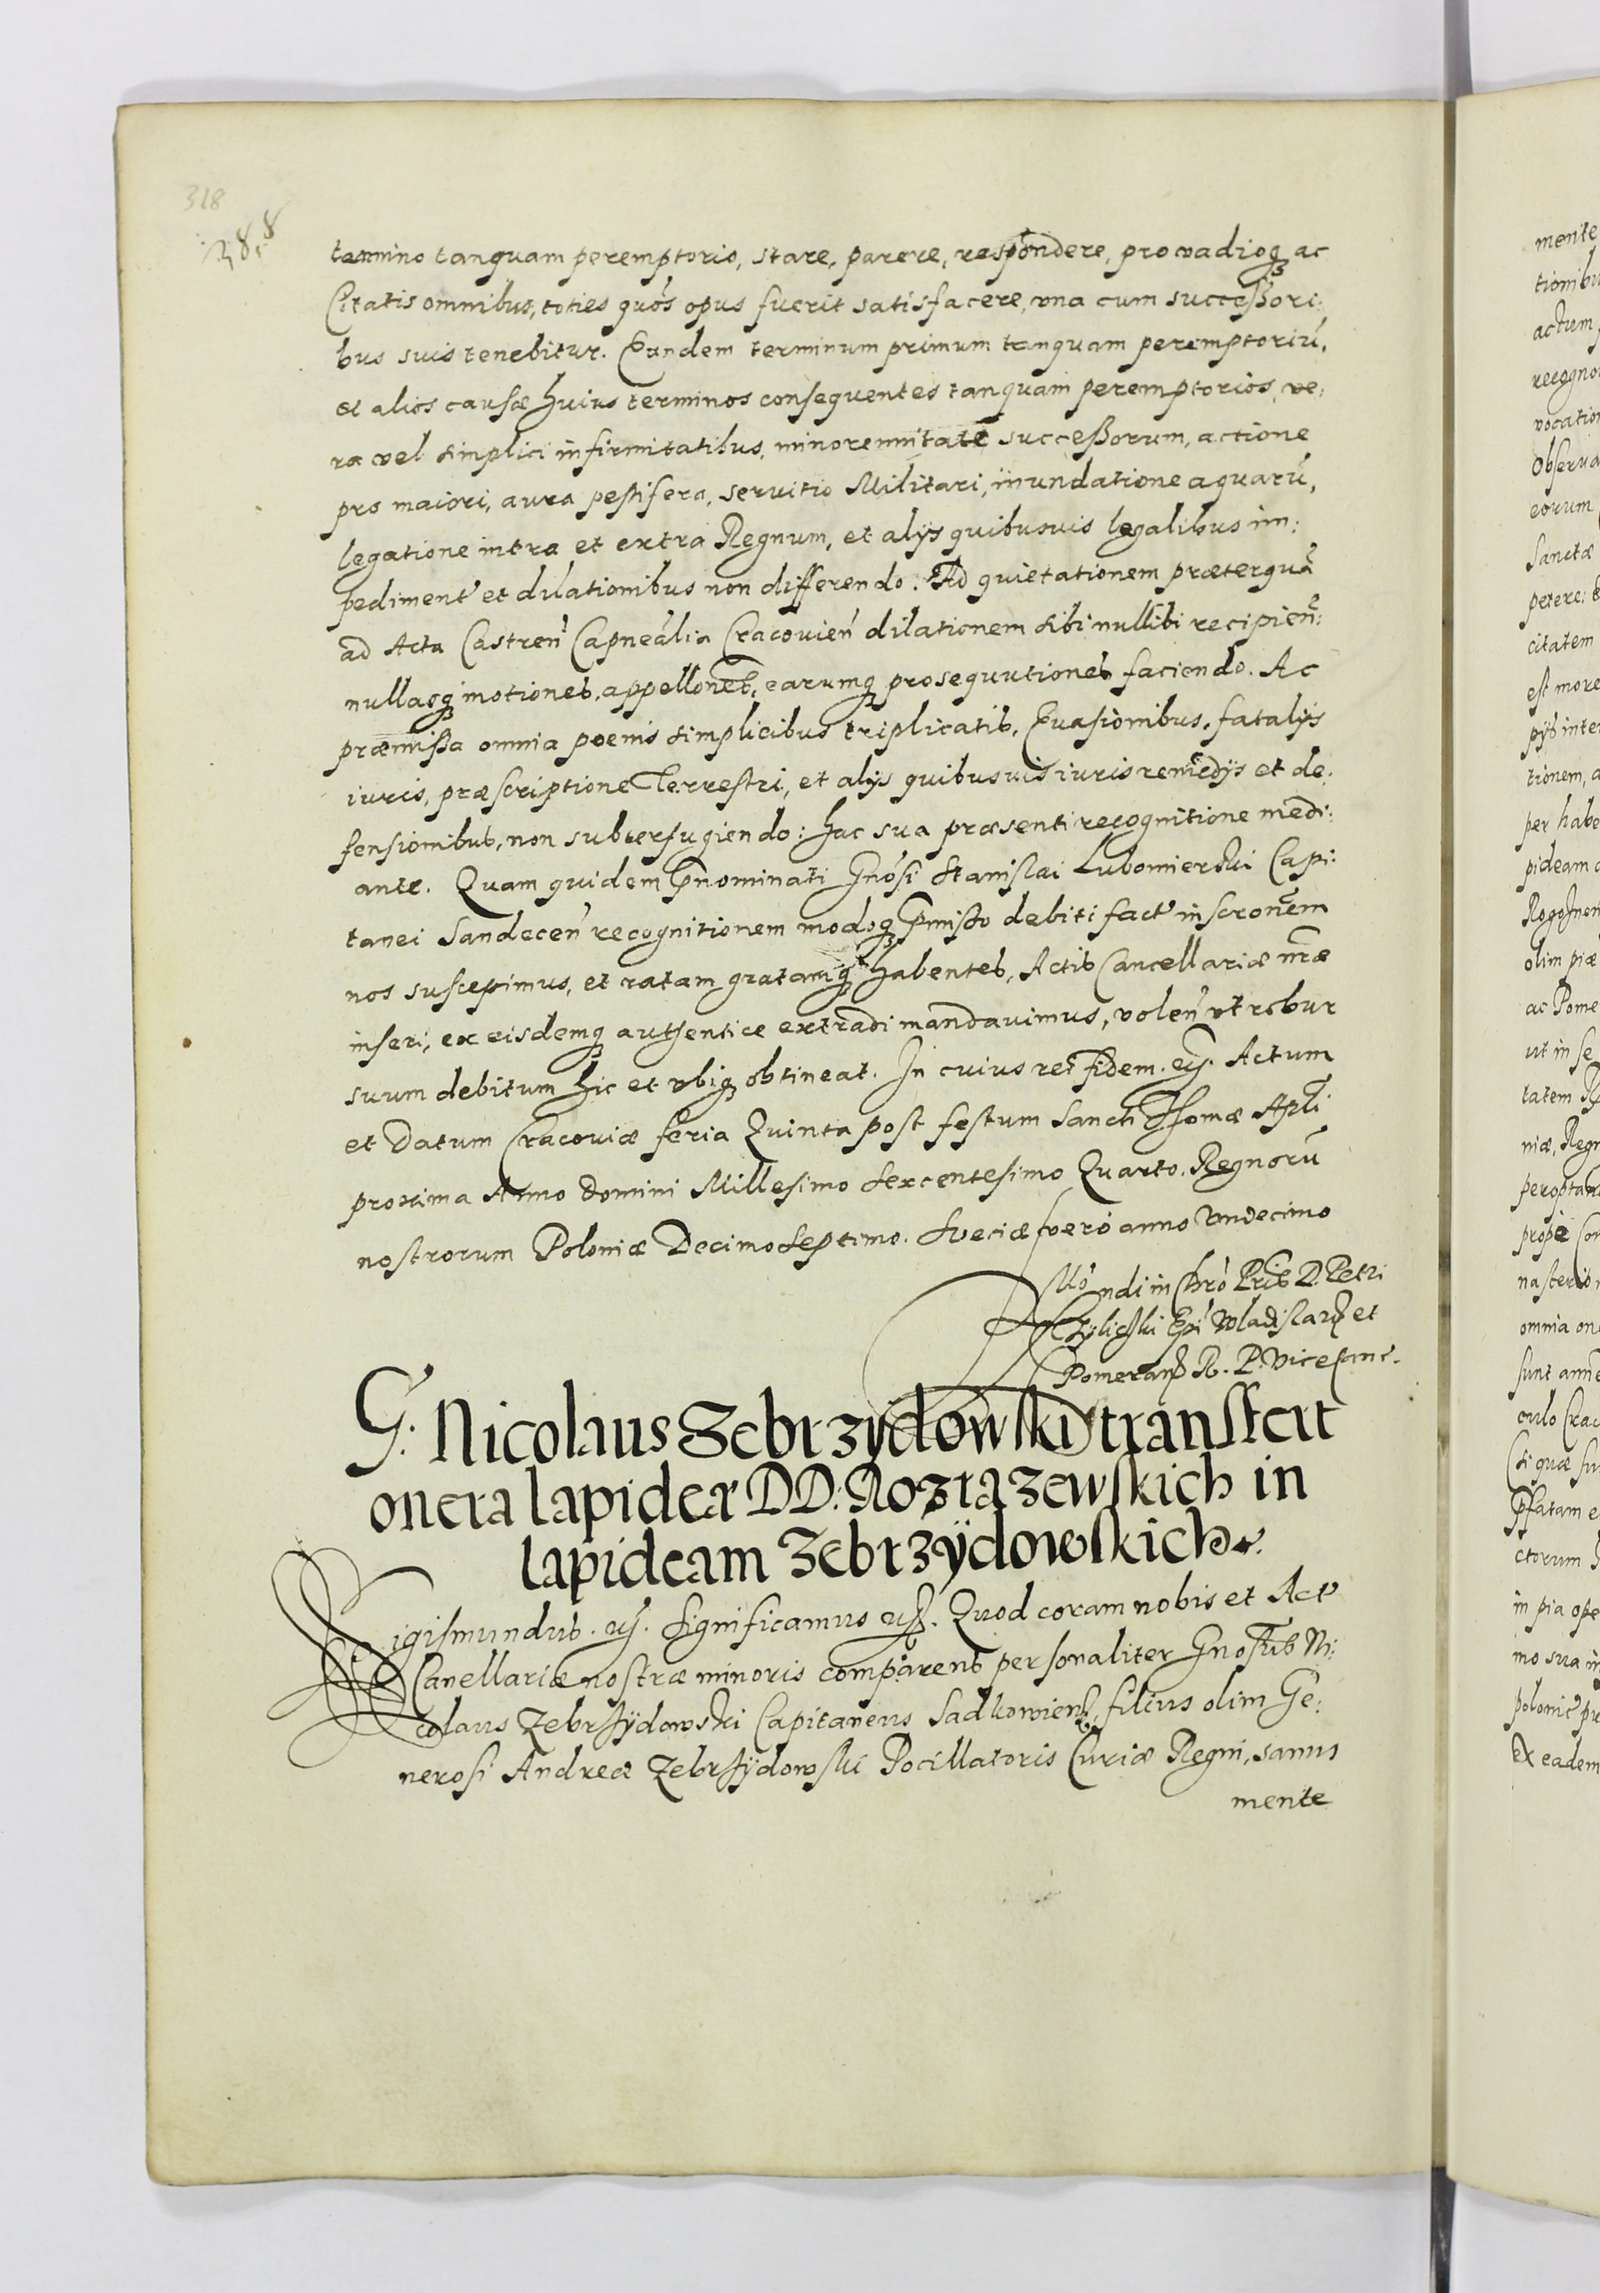 318
388
termino tanquam peremptorio, stare, parere, respondere, pro vadioq; ac
Citatis omnibus, toties quo͂s opus fuerit satisfacere, vna cum successori:
bus suis tenebitur. Eundem terminum primum tanquam peremptoriu͂,
et alios causæ huius terminos consequentes tanquam peremptorios, ve:
ra vel simplici infirmitatibus, minorennitate successorum, actione
pro maiori, aura pestifera, servitio Militari, inundatione aquaru͂,
legatione intra et extra Regnum, et alijs quibusuis legalibus im:
pediment' et dilationibus non differendo. Ad quietationem præterqua͂
ad Acta Castren͂ Capnealia Cracovien͂ dilationem sibi nullibi recipien͂:
nullasq; motiones, appellon͂es, earumq; prosequutiones faciendo. Ac
præmissa omnia poenis simplicibus triplicatis, Evasionibus, fatalijs
iuris, præscriptione Terrestri, et alijs quibusuis iuris remedijs et de:
fensionibus, non subterfugiendo: hac sua præsenti recognitione medi:
ante. Quam quidem p͂nominati Gno͂si Stanislai Lubomierski Capi:
tanei Sandecen͂ recognitionem modoq; p͂misso debiti fact' inscron͂em
nos suscepimus, et ratam gratamq; habentes, Actis Cancellariæ nr͂æ
inseri, ex eisdemq; authentice extradi mandauimus, volen͂ vt robur
suum debitum hic et vbiq; obtineat. In cuius rei fidem. etc. Actum
et Datum Cracoviæ feria Quinta post festum Sancti Thomæ Apl͂i
proxima Anno Domini Millesimo Sexcentesimo Quarto. Regnoru͂
nostrorum Poloniæ Decimo Septimo. Sveciæ vero anno Vndecimo
R͂ndi in Chr͂o Pr͂is D. Petri
Tylicki Ep͂i Wladislav; et
Pomeran; R. P. Vicecanc.
G: Nicolaus Zebrzydowski transfert
onera lapideæ DD: Rozrazewskich in
lapideam Zebrzÿdowskich.
Sigismundus. etc. Significamus etc. Quod coram nobis et Act'
Canellariæ nostræ minoris comparens personaliter Gnosus Ni:
colaus Zebrzÿdowski Capitaneus Sadkowien;, filius olim Ge:
nerosi Andreæ Zebrzÿdowski Pocillatoris Curiæ Regni, sanus
mente